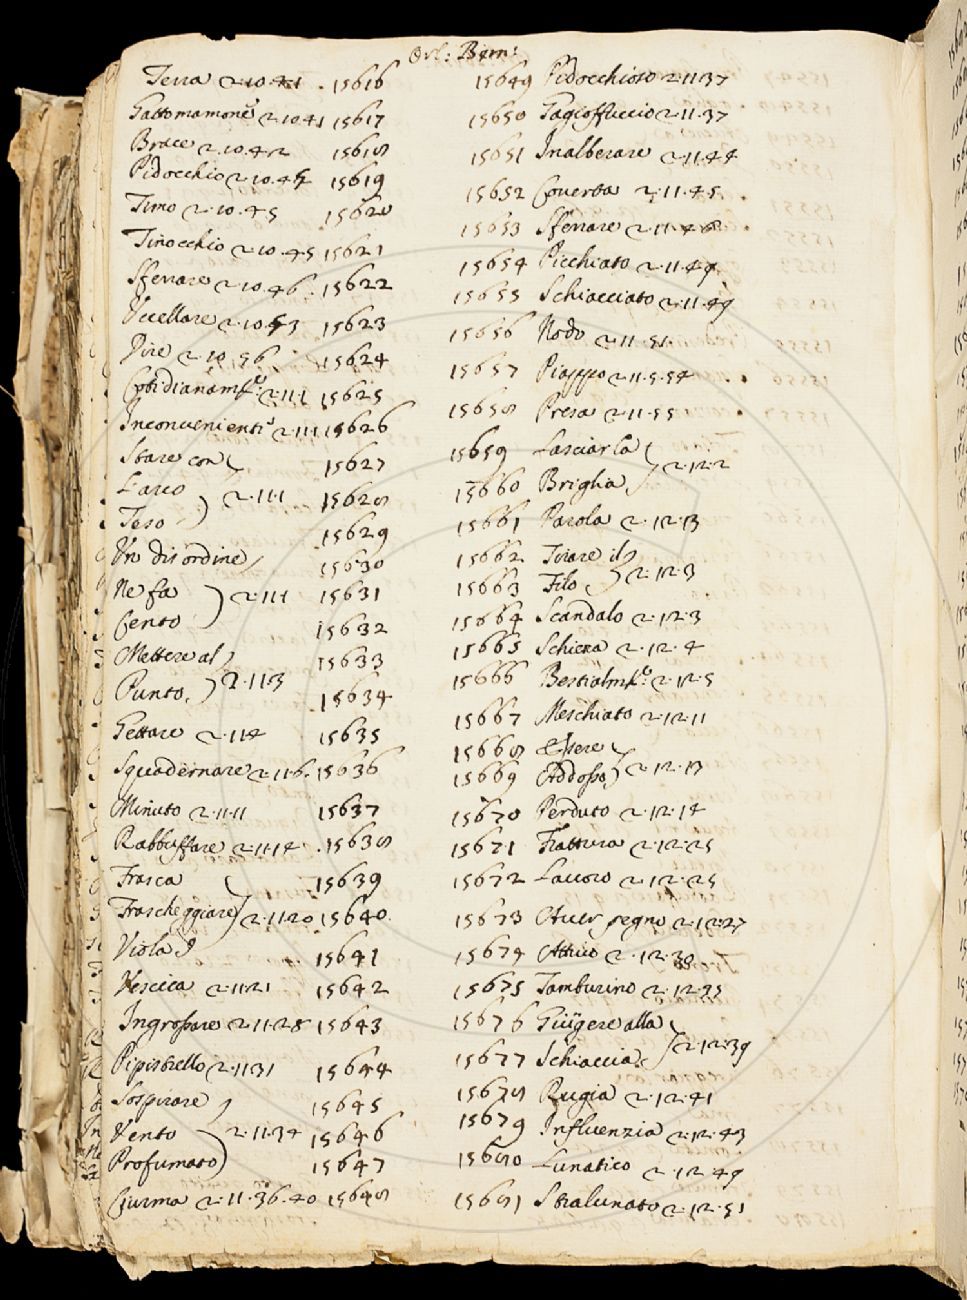 Orl: Bern:
Terra 2.10.41 . 15616
Gattomamone 2.10.41 15617
Brace 2.10.42 15618
Pidocchio 2.10.44 15619
Timo 2.10.45 15620
Finocchio 2.10.45 15621
Sferrare 2.10.46 . 15622
Vccellare 2.10.53 15623
Dire 2.10.56 15624
Cotidianamte. 2.11.1 15625
Inconvenienti 2.11.1 15626
Stare con 15627
Larco 2.11.1 15628
Teso 15629
Vn disordine 15630
Ne fa 2.11.1 15631
Cento 15632
Mettere al 15633
Punto. 2.11.3 15634
Gettare 2.11.4 15635
Squadernare 2.11.6. 15636
Minuto 2.11.11 15637
Rabbuffare 2.11.14 . 15638
Frasca 15639
Frascheggiare 2.11.20 15640.
Viola 15641
Vescica 2.11.21 15642
Ingrossare 2.11.28 15643
Pipistrello 2.11.31 15644
Sospirare 15645
Vento 2.11.34 15646
Profumato 15647
Ciurma 2.11.36.40 15648
15649 Pidocchioso 2.11.37
15650 2.11.37
15651 Inalberare 2.11.44
15652 Coverta 2.11.45
15653 Sferrare 2.11.48
15654 Picchiato 2.11.49
15655 Schiacciato 2.11.49
15656 Nodo 2.11.51
15657 2.11.5.54
15658 Presa 2.11.55
15659 Lasciar la
15660 Briglia 2.12.2
15661 Parola 2.12.13
15662 Tirare il
15663 Filo 2.12.3
15664 Scandalo 2.12.3
15665 Schiera 2.12.4
15666 Bestialmte. 2.12.5
15667 Meschiato 2.12.11
15668 Essere
15669 Addosso 2.12.13
15670 Perduto 2.12.14
15671 Frattura 2.12.25
15672 Lavoro 2.12.25
15673 Aver pegno 2.12.27
15674 Attivo 2.12.30
15675 Tamburino 2.12.35
15676 Giügere alla
15677 Schiaccia. 2.12.39
15678 Rugia 2.12.41
15679 Influenzia 2.12.43
15680 Lunatico 2.12.49
15681 Stralunato 2.12.51